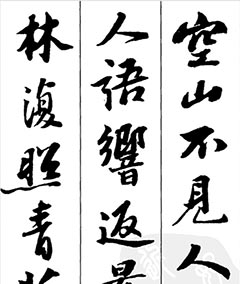 空山不見人
人語響返
林復照青